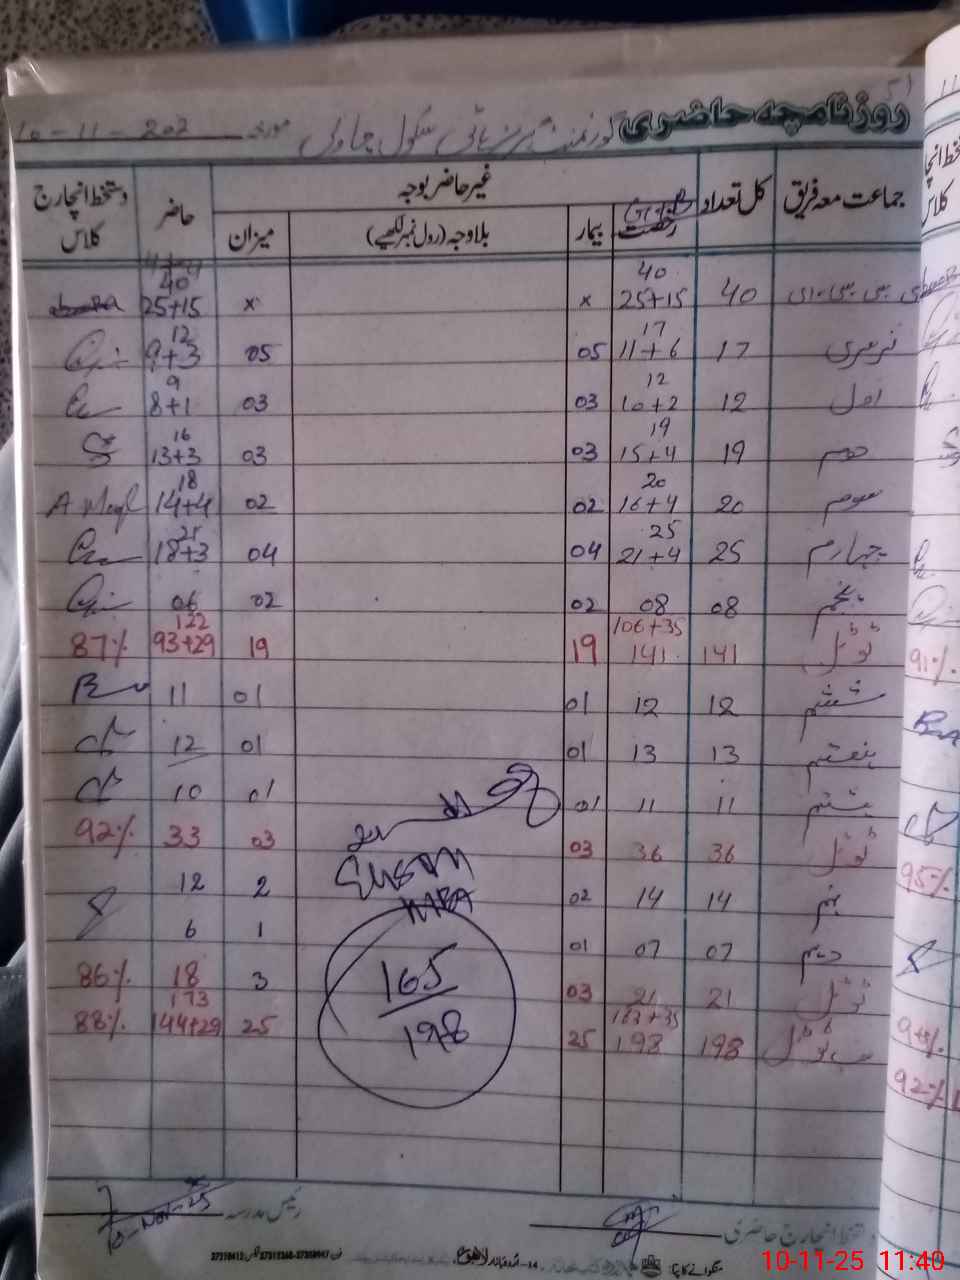 روزنامچہ حاضری گورنمنٹ ہائی سکول چاولی مورخہ 10-11-202
جماعت معہ فریق کل تعداد غیر حاضر بوجہ حاضر دستخط انچارج کلاس
رخصت بیمار بلاوجہ (رول نمبر لکھیے) میزان
40 40
ای سی سی ای 40 25+15 x x 25+15
17 12
نرسری 17 11+6 05 05 9+3
12 9
اول 12 10+2 03 03 8+1
19 16
دوم 19 15+4 03 03 13+3
20 18
سوم 20 16+4 02 02 14+4
25 21
چہارم 25 21+4 04 04 18+3
پنجم 08 08 02 02 06
106+35 122
ٹوٹل 141 141 19 19 93+29 87%
ششم 12 12 01 01 11
ہفتم 13 13 01 01 12
ہشتم 11 11 01 01 10
ٹوٹل 36 36 03 03 33 92%
نہم 14 14 02 2 12
MEA
دہم 07 07 01 1 6
165
ٹوٹل 21 21 03 3 18 86%
198
163+35 173
ٹوٹل 198 198 25 25 144+29 88%
91%
95%
92%
دستخط انچارج حاضری رئیس مدرسہ
10-Nov-25
10-11-25 11:40